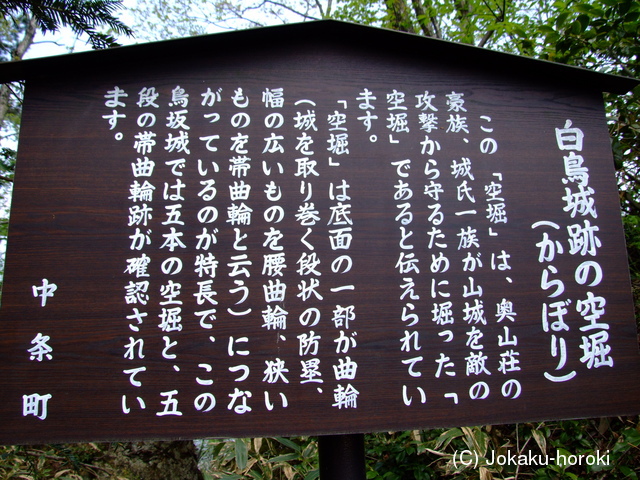 白鳥城跡の空堀
(からぼり)
この「空堀」は、奥山荘の
豪族、城氏一族が山城を敵の
攻撃から守るために堀った「
空堀」であると伝えられてい
ます。
「空堀」は底面の一部が曲輪
(城を取り巻く段状の防塁、
幅の広いものを腰曲輪、狭い
ものを帯曲輪と云う)につな
がっているのが特長で、この
鳥坂城では五本の空堀と、五
段の帯曲輪跡が確認されてい
ます。
中条町
(C) Jokaku-horoki